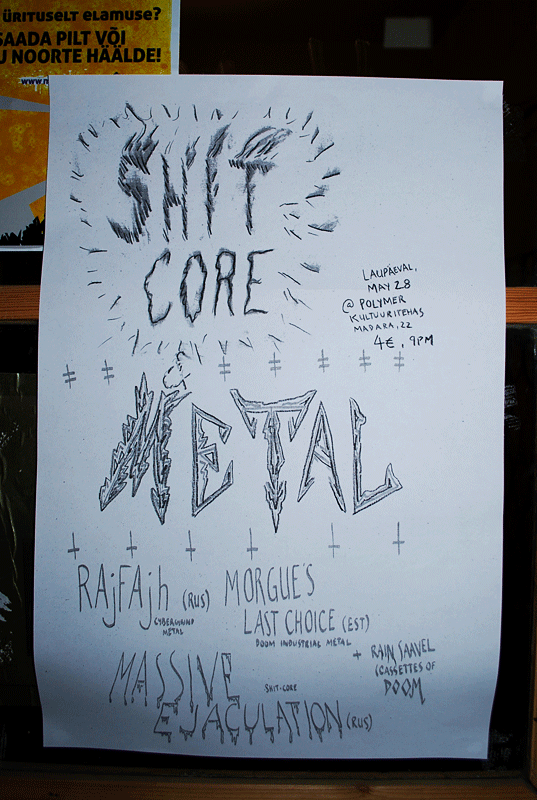 ürituselt elamuse?
SAADA PILT VÕI
NOORTE HÄÄLDE!
SHIT
CORE
LAUPÄEVAL,
MAY 28
@ POLYMER
KULTUURITEHAS
MADARA, 22
4€, 9PM
METAL
RAjFAjh (RUS)
CYBERGRIND
METAL
MORGUE'S
LAST CHOICE (EST)
DOOM INDUSTRIAL METAL
+ RAIN SAAVEL
(CASSETTES OF
DOOM
MASSIVE
SHIT-CORE
EJACULATION (RUS)